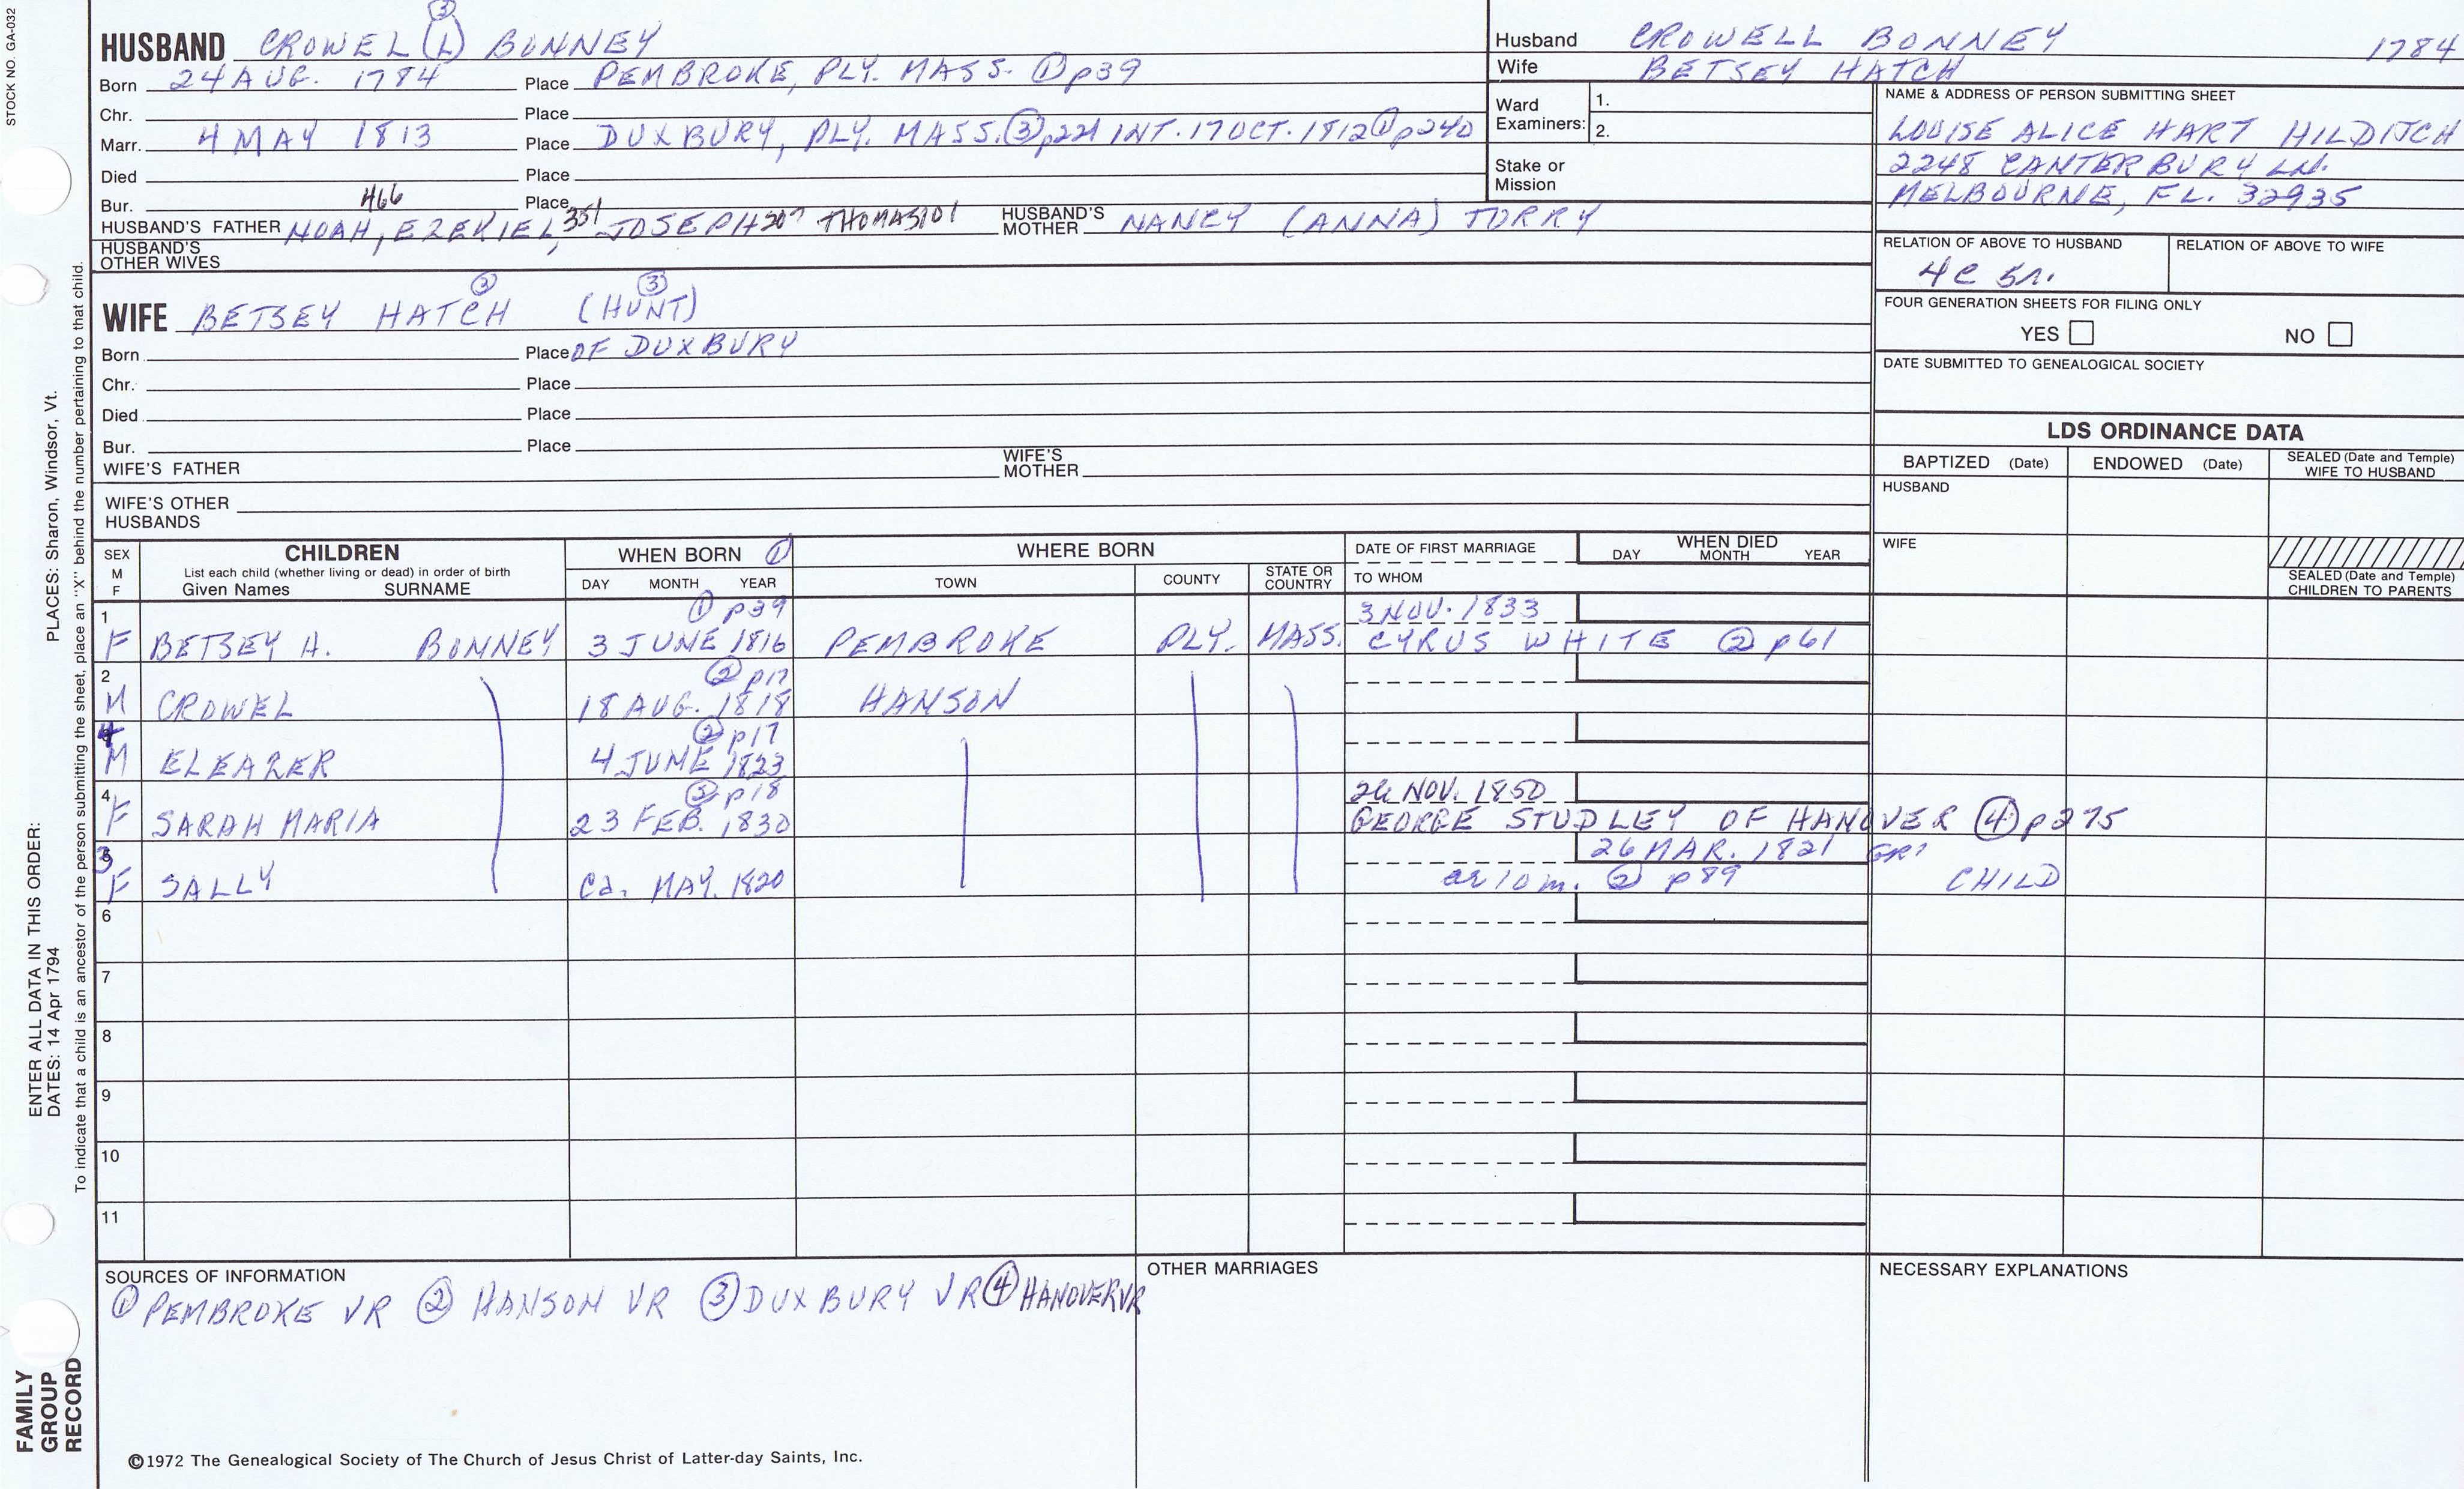 STOCK NO. GA-032
③
HUSBAND CROWEL (L) BONNEY
Born 24 AUG. 1784 Place PEMBROKE, PLY. MASS. ① p39
Chr. Place
Marr. 4 MAY 1813 Place DUXBURY, PLY. MASS. ③ p221 INT. 17 OCT. 1812 ① p240
Died Place
Bur. Place
466 351 307 101
HUSBAND'S FATHER NOAH, EZEKIEL, JOSEPH THOMAS HUSBAND'S MOTHER NANCY (ANNA) TORRY
HUSBAND'S OTHER WIVES
③ ③
WIFE BETSEY HATCH (HUNT)
Born Place OF DUXBURY
Chr. Place
Died Place
Bur. Place
WIFE'S FATHER WIFE'S MOTHER
WIFE'S OTHER HUSBANDS
Husband CROWELL BONNEY 1784
Wife BETSEY HATCH
Ward Examiners: 1.
2.
Stake or Mission
NAME & ADDRESS OF PERSON SUBMITTING SHEET
LOUISE ALICE HART HILDITCH
2248 CANTERBURY LN.
MELBOURNE, FL. 32935
RELATION OF ABOVE TO HUSBAND RELATION OF ABOVE TO WIFE
4C 5r.
FOUR GENERATION SHEETS FOR FILING ONLY
YES NO
DATE SUBMITTED TO GENEALOGICAL SOCIETY
LDS ORDINANCE DATA
BAPTIZED (Date) ENDOWED (Date) SEALED (Date and Temple) WIFE TO HUSBAND
HUSBAND
WIFE
SEALED (Date and Temple) CHILDREN TO PARENTS
SEX M F CHILDREN WHEN BORN ① WHERE BORN DATE OF FIRST MARRIAGE WHEN DIED
List each child (whether living or dead) in order of birth
Given Names SURNAME DAY MONTH YEAR TOWN COUNTY STATE OR COUNTRY TO WHOM DAY MONTH YEAR
1 ① p39 3 NOV. 1833
F BETSEY H. BONNEY 3 JUNE 1816 PEMBROKE PLY. MASS. CYRUS WHITE ② p61
2 ② p17
M CROWEL 18 AUG. 1818 HANSON
4 ② p17
M ELEAZER 4 JUNE 1823
4 ② p18 26 NOV. 1850
F SARAH MARIA 23 FEB. 1830 GEORGE STUDLEY OF HANOVER ④ p275
3 26 MAR. 1821 GR?
F SALLY Ca. MAY. 1820 ae 10 m. ② p89 CHILD
6
7
8
9
10
11
SOURCES OF INFORMATION OTHER MARRIAGES NECESSARY EXPLANATIONS
① PEMBROKE VR ② HANSON VR ③ DUXBURY VR ④ HANOVER VR
©1972 The Genealogical Society of The Church of Jesus Christ of Latter-day Saints, Inc.
ENTER ALL DATA IN THIS ORDER:
DATES: 14 Apr 1794 PLACES: Sharon, Windsor, Vt.
To indicate that a child is an ancestor of the person submitting the sheet, place an "X" behind the number pertaining to that child.
FAMILY
GROUP
RECORD